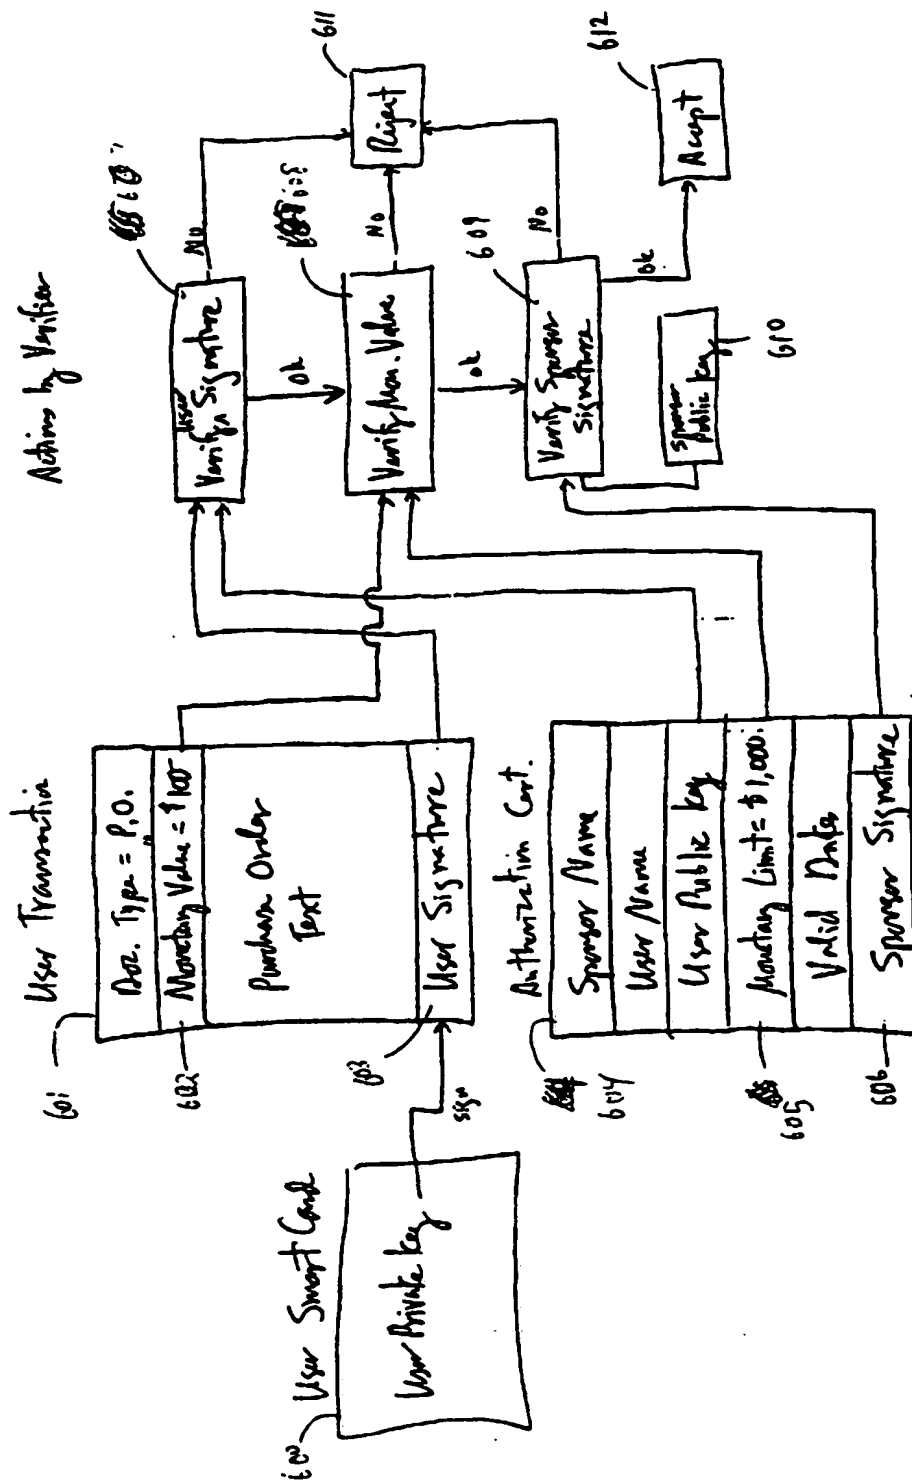 User Smart Card
600
User Private Key
sign
User Transaction
601
Doc. Type = P.O.
Monetary Value = $100
602
Purchase Order
Text
603
User Signature
Authorization Cert.
604
Sponsor Name
User Name
User Public Key
Monetary Limit = $1,000.
605
Valid Dates
Sponsor Signature
606
Actions by Verifier
User
Verify Signature
No
ok
Verify Mon. Value
No
ok
609
Verify Sponsor
Signature
No
ok
Sponsor
Public Key
610
Reject
611
Accept
612